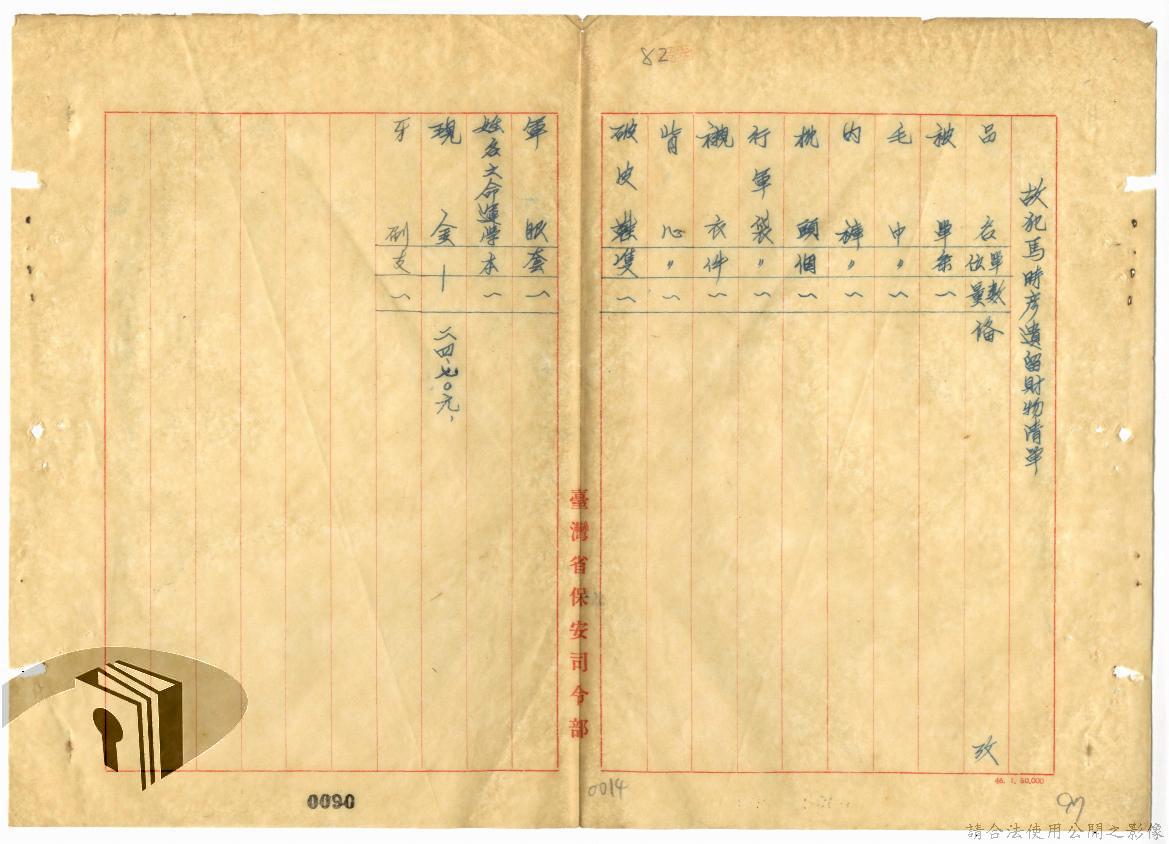 82
故犯馬時彥遺留財物清單
品名 單位 數量 備 攷
被單 條 一
毛巾 〃 一
內褲 〃 一
枕頭 個 一
行軍袋 〃 一
襯衣 件 一
背心 〃 一
破皮鞋 隻 一
軍服 套 一
姓名之命運學 本 一
現金 — 二四.七〇元,
牙刷 支 一
臺灣省保安司令部
46. 1. 50,000
0090
0014
97
請合法使用公開之影像